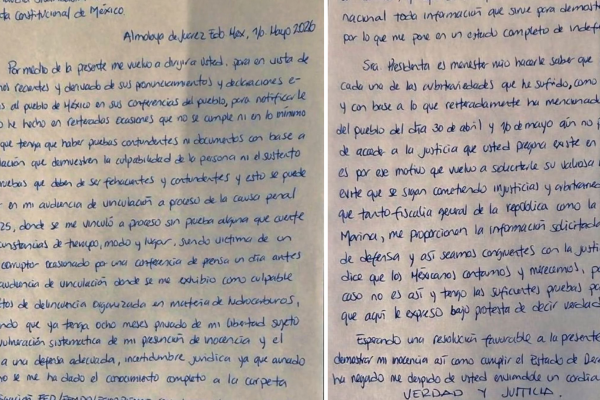 ta constitucional de México
Almoloya de Juarez Edo Mex, 16 Mayo 2026
Por medio de la presente me vuelvo a dirigir a Usted, para en vista de
nos recientes y derivado de sus pronunciamientos y declaraciones e-
s al pueblo de México en sus conferencias del pueblo, para notificarle
o he hecho en reiteradas ocasiones que no se cumple ni en lo mínimo
que tenga que haber pruebas contundentes ni documentos con base a
lación que demuestren la culpabilidad de la persona ni el sustento
uebas que deben de ser fehacientes y contundentes y esto se puede
en mi audiencia de vinculación a proceso de la causa penal
25, donde se me vinculó a proceso sin prueba alguna que cuente
cunstancias de tiempo, modo y lugar, siendo victima de un
corruptor ocasionado por una conferencia de prensa un día antes
audiencia de vinculación donde se me exhibio como culpable
tos de delincuencia organizada en materia de hidrocarburos,
ndo que ya tengo ocho meses privado de mi libertad sujeto
vulneración sistematica de mi presunción de inocencia y el
a una defensa adecuada, incertidumbre juridica ya que aunado
no se me ha dado el conocimiento completo a la carpeta
nacional toda información que sirve para demostra
por lo que me pone en un estado completo de indef
Sra Presidenta es menester mio hacerle saber que
cada una de las arbitrariedades que he sufrido, como
y con base a lo que reiteradamente ha mencionado
del pueblo del día 30 de abril y 16 de mayo aún no
de accede a la justicia que usted pregona existe en
es por ese motivo que vuelvo a solicitarle su valiosa
evite que se sigan cometiendo injusticias y arbitrarieda
que tanto fiscalia general de la república como la
Marina, me proporcionen la información solicitada
de defensa y así seamos congruentes con la justi
dice que los Mexicanos contamos y merecemos, po
caso no es así y tengo las suficientes pruebas pa
que aquí le expreso bajo protesta de decir verdad
Esperando una resolución favorable a la presente
demostrar mi inocencia así como cumplir el Estado de Dere
ha negado me despido de usted enviandole un cordial
VERDAD Y JUSTICIA.